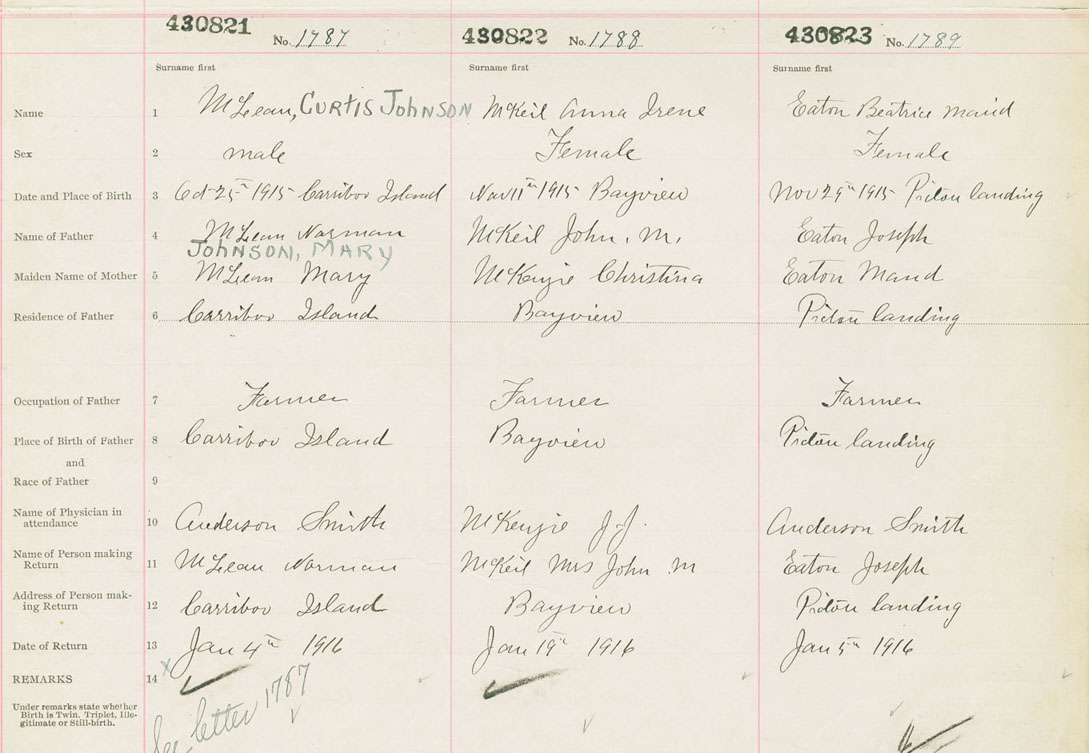 430821 No. 1787 430822 No. 1788 430823 No. 1789
Surname first Surname first Surname first
Name 1 McLean, CURTIS JOHNSON McKeil Anna Irene Eaton Beatrice Maud
Sex 2 male Female Female
Date and Place of Birth 3 Oct 25th 1915 Carribov Island Nov 11th 1915 Bayview Nov 29th 1915 Pictou landing
Name of Father 4 McLean Norman McKeil John. M. Eaton Joseph
JOHNSON, MARY
Maiden Name of Mother 5 McLean Mary McKenzie Christina Eaton Maud
Residence of Father 6 Carribov Island Bayview Pictou landing
Occupation of Father 7 Farmer Farmer Farmer
Place of Birth of Father 8 Carribov Island Bayview Pictou landing
and
Race of Father 9
Name of Physician in
attendance 10 Anderson Smith McKenzie J.J. Anderson Smith
Name of Person making
Return 11 McLean Norman McKeil Mrs John M Eaton Joseph
Address of Person mak-
ing Return 12 Carribov Island Bayview Pictou landing
Date of Return 13 Jan 4th 1916 Jan 19th 1916 Jan 5th 1916
REMARKS 14 x
Under remarks state whether
Birth is Twin, Triplet, Ille-
gitimate or Still-birth.
See letter 1787